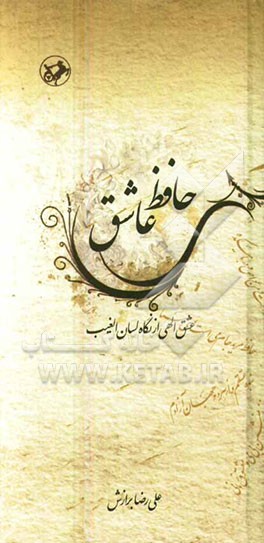 حافظ
عاشق
عشق الهی از نگاه لسان الغیب
WWW.KETAB.IR
علی رضا برازش